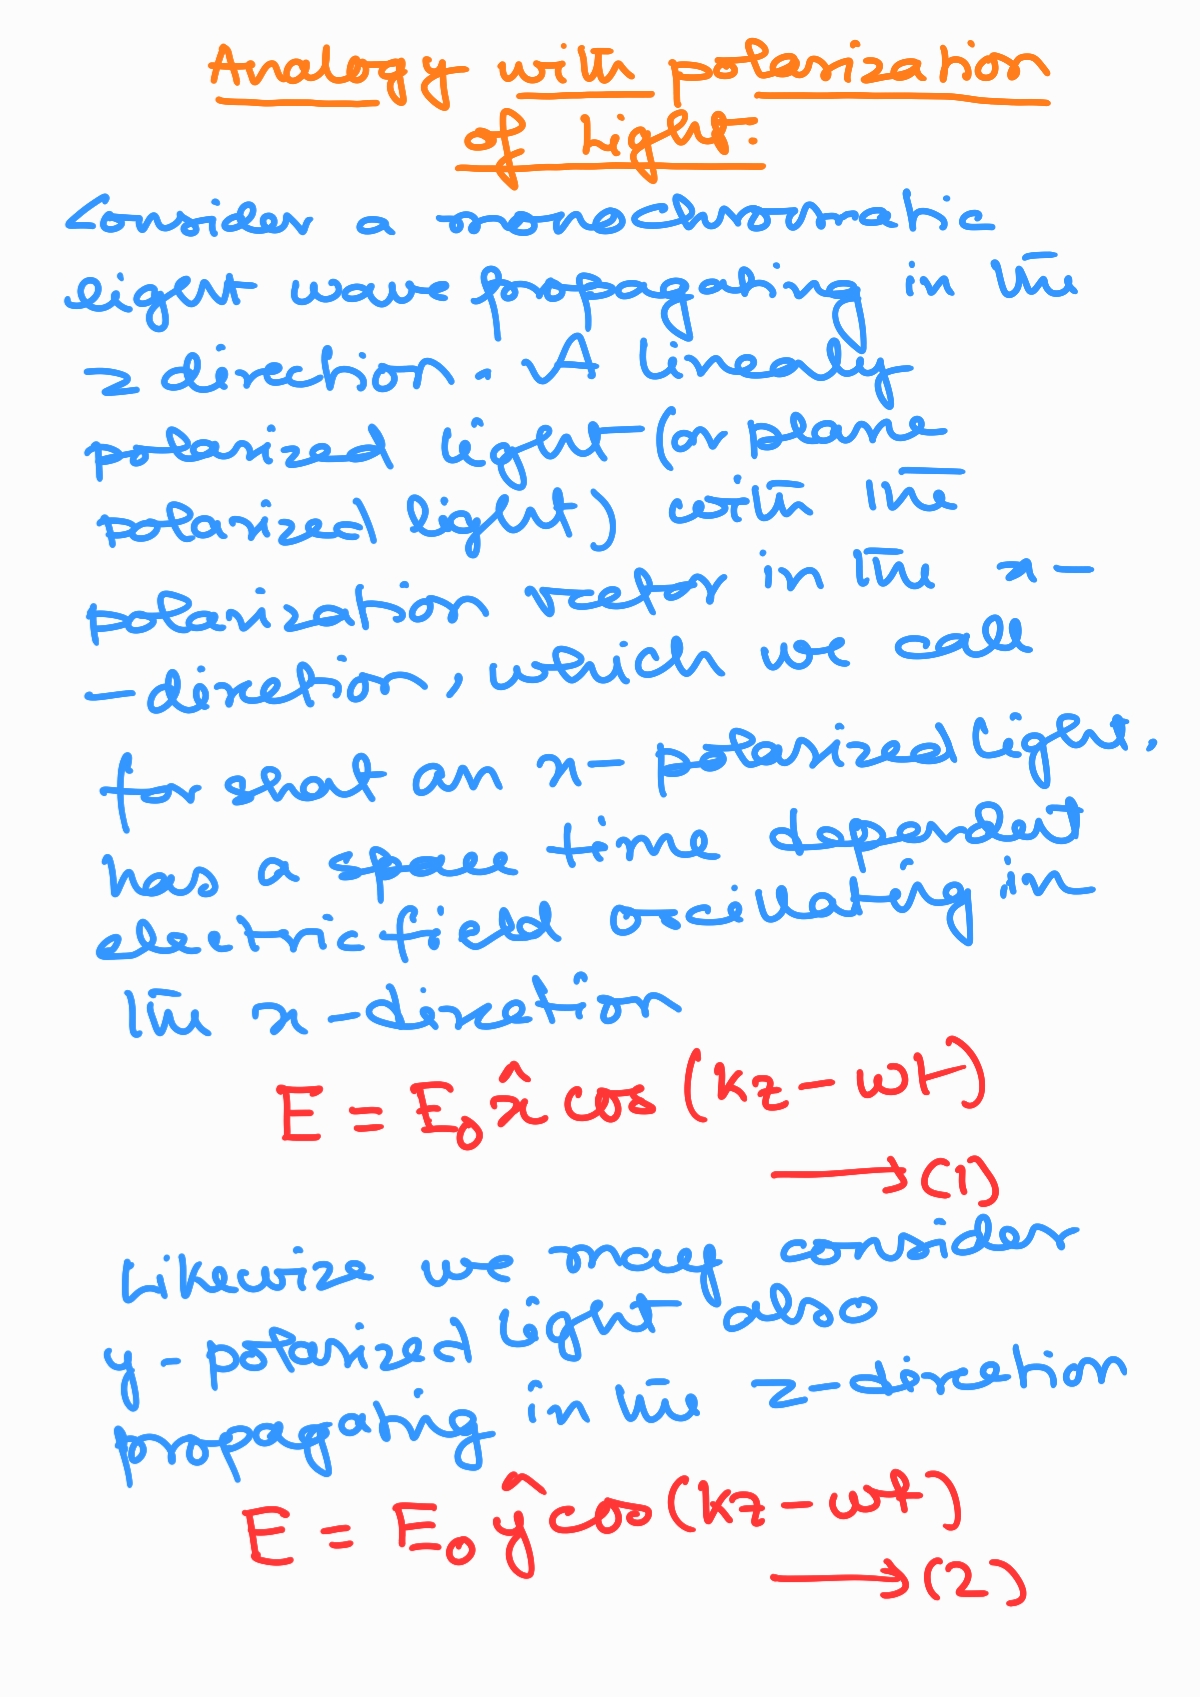 Analogy with polarization
of Light:
Consider a monochromatic
light wave propagating in the
z direction. A linearly
polarized light (or plane
polarized light) with the
polarization vector in the x-
-direction, which we call
for shot an x-polarized light,
has a space time dependent
electric field oscillating in
the x-direction
E = E₀ x̂ cos (kz - wt)
→ (1)
Likewize we may consider
y-polarized light also
propagating in the z-direction
E = E₀ ŷ cos (kz - wt)
→ (2)